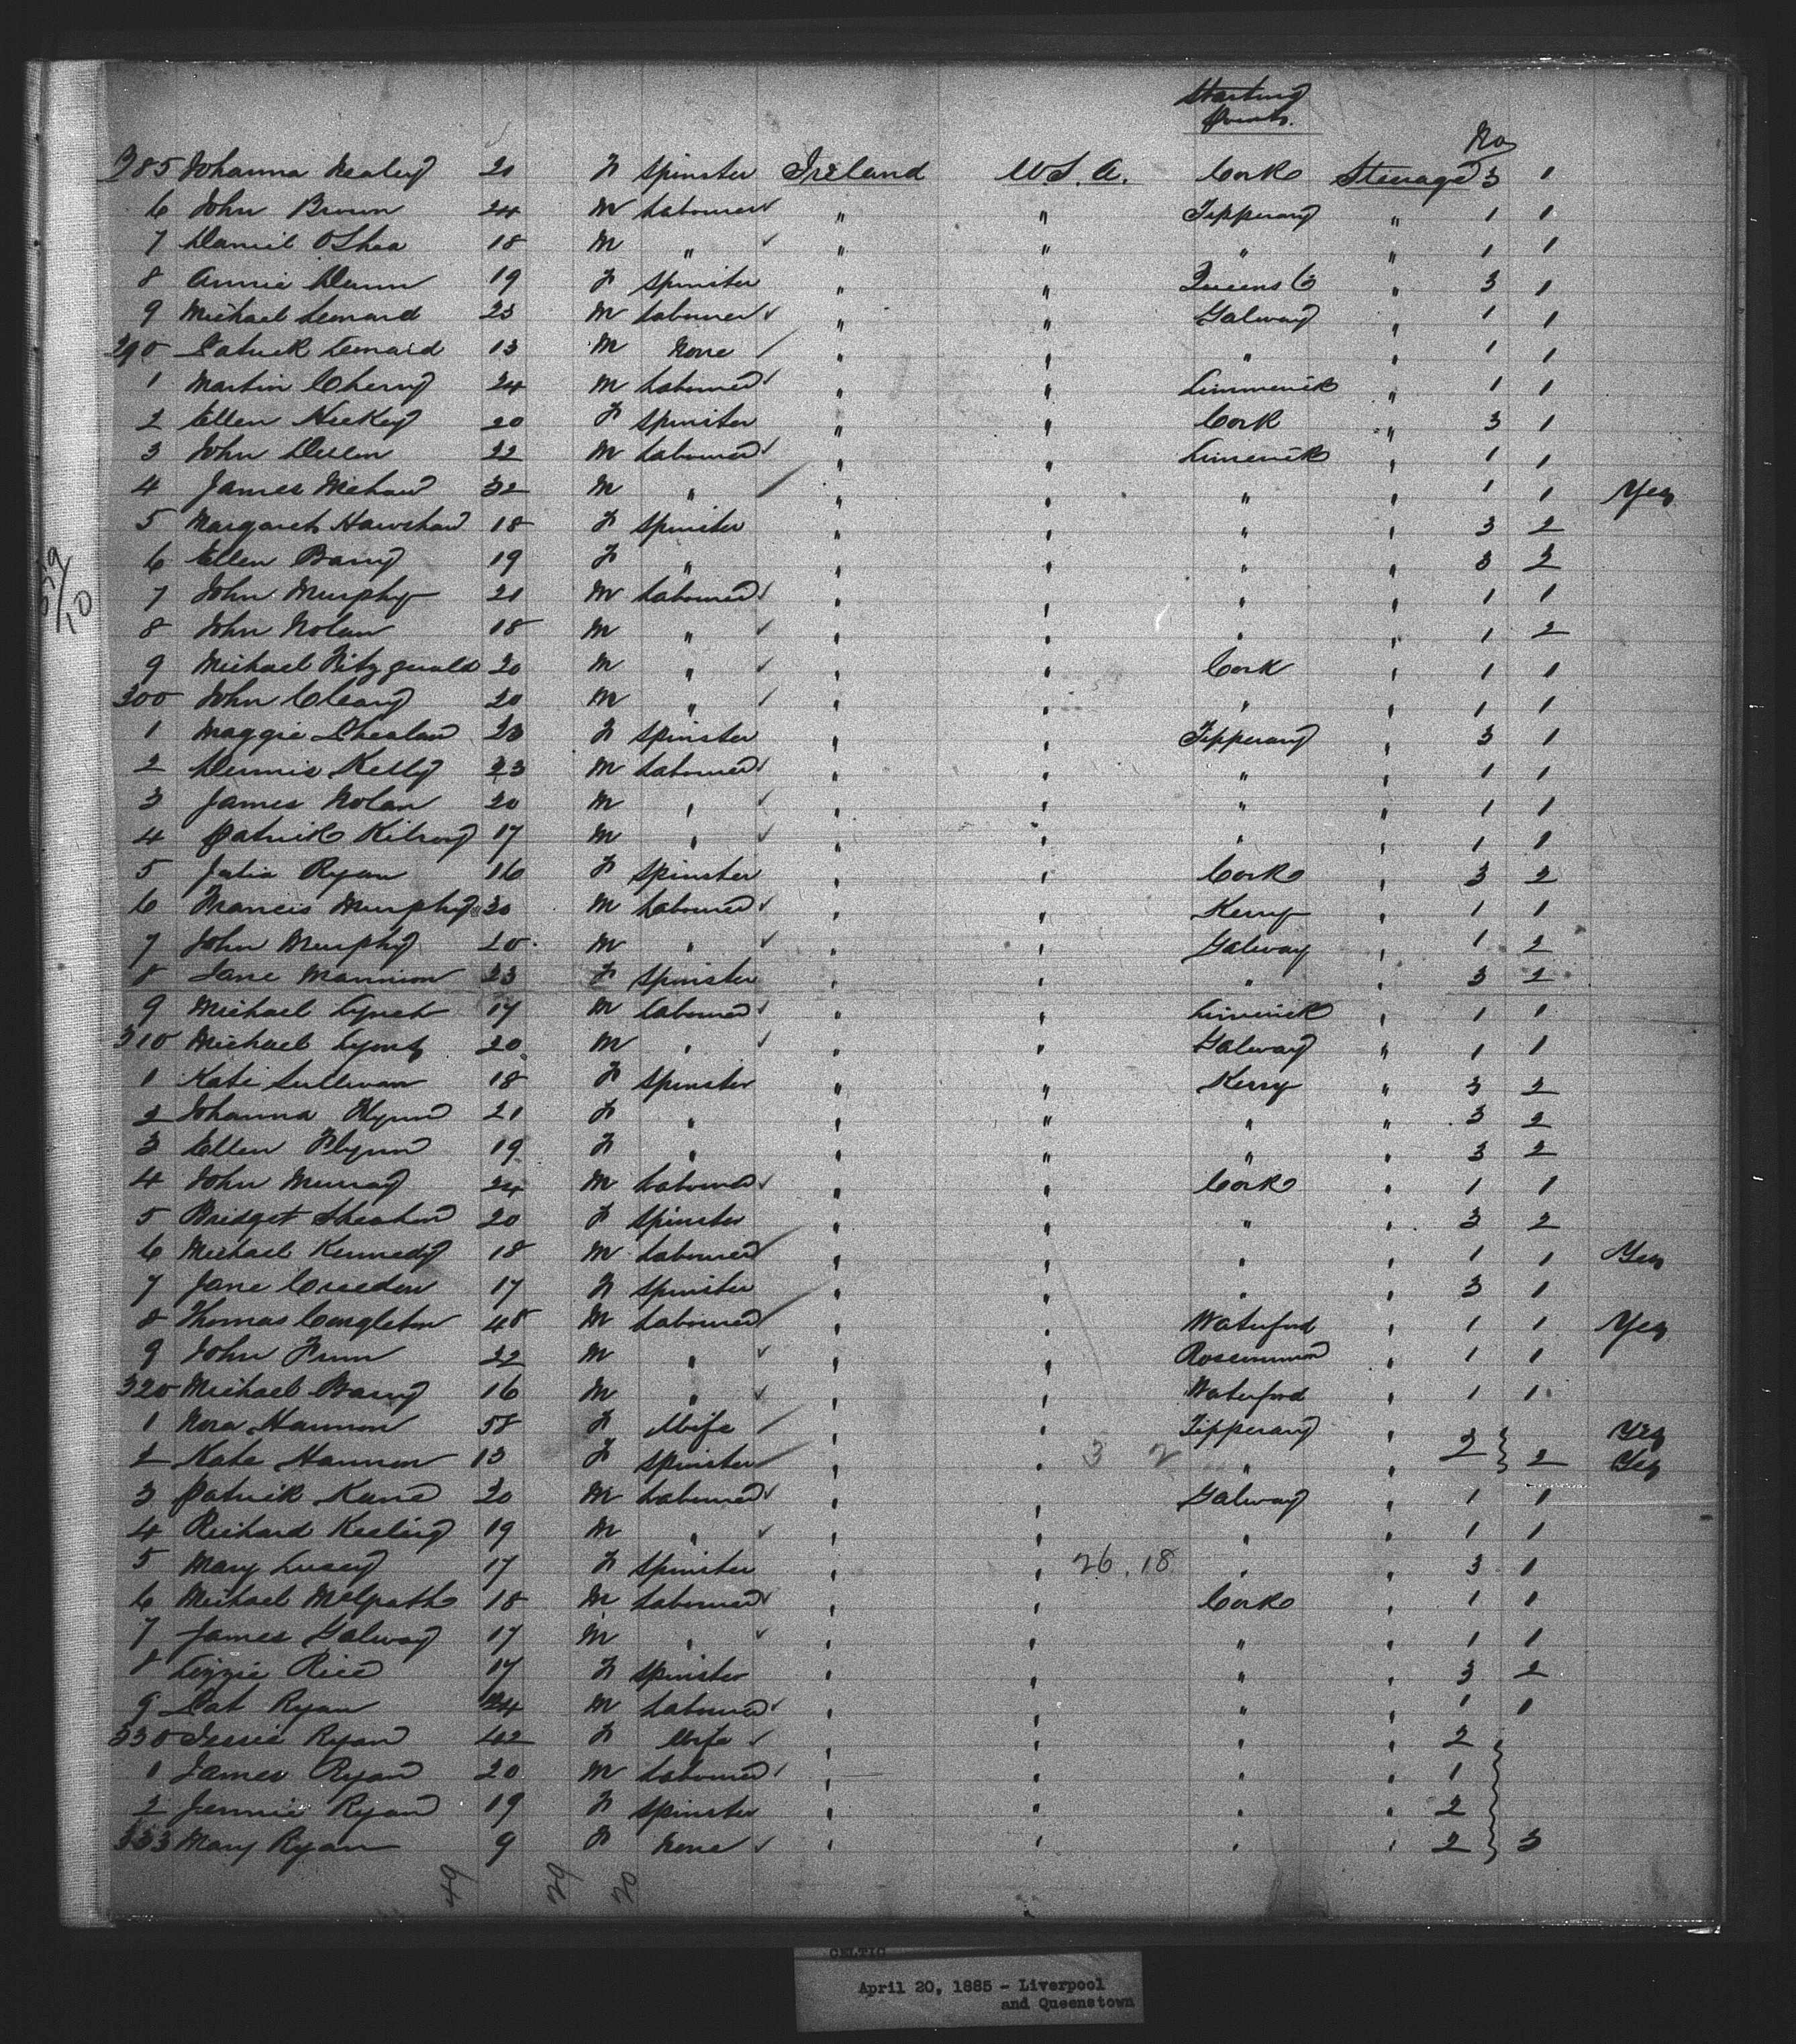 Starting
Points.
No
285 Johanna Healey 20 F Spinster Ireland U.S.A. Cork Steerage 3 1
6 John Brown 24 M Labourer " " Tipperary " 1 1
7 Daniel O'Shea 18 M " " " " " 1 1
8 Annie Dunn 19 F Spinster " " Queens Co " 3 1
9 Michael Lenard 23 M Labourer " " Galway " 1 1
290 Patrick Lenard 13 M None " " " " 1 1
1 Martin Cherry 24 M Labourer " " Limmerick " 1 1
2 Ellen Hickey 20 F Spinster " " Cork " 3 1
3 John 22 M Labourer " " Limerick " 1 1
4 James 32 M " " " " " 1 1 Yes
5 Margaret 18 F Spinster " " " " 3 2
6 Ellen Barry 19 F " " " " " 3 2
7 John Murphy 21 M Labourer " " " " 1 1
8 John Nolan 18 M " " " " " 1 2
9 Michael Fitzgerald 20 M " " " Cork " 1 1
300 John Cleary 20 M " " " " " 1 1
1 Maggie Phealan 23 F Spinster " " Tipperary " 3 1
2 Dennis Kelly 23 M Labourer " " " " 1 1
3 James Nolan 20 M " " " " " 1 1
4 Patrick Kilroy 17 M " " " " " 1 1
5 Julia Ryan 16 F Spinster " " Cork " 3 2
6 Francis Murphy 20 M Labourer " " Kerry " 1 1
7 John Murphy 20 M " " " Galway " 1 2
8 Jane Mannion 23 F Spinster " " " " 3 2
9 Michael Lynch 17 M Labourer " " Limerick " 1 1
310 Michael Lyons 20 M " " " Galway " 1 1
1 Kate Sullivan 18 F Spinster " " Kerry " 3 2
2 Johanna Flynn 21 F " " " " " 3 2
3 Ellen Flynn 19 F " " " " " 3 2
4 John Murray 24 M Labourer " " Cork " 1 1
5 Bridget Sheahan 20 F Spinster " " " " 3 2
6 Michael Kennedy 18 M Labourer " " " " 1 1 Yes
7 Jane Creedon 17 F Spinster " " " " 3 1
8 Thomas Congleton 48 M Labourer " " Waterford " 1 1 Yes
9 John Finn 22 M " " " Roscommon " 1 1
320 Michael Barry 16 M " " " Waterford " 1 1
1 Nora Hannon 58 F Wife " " Tipperary " Yes
2 Kate Hannon 13 F Spinster " " 3 2 " " 2 2 Yes
3 Patrick Kane 20 M Labourer " " Galway " 1 1
4 Richard Keeling 19 M " " " " " 1 1
5 Mary Lucey 17 F Spinster " " 26.18 " " 3 1
6 Michael McGrath 18 M Labourer " " Cork " 1 1
7 James Galway 17 M " " " " " 1 1
8 Lizzie Rice 17 F Spinster " " " " 3 2
9 Pat Ryan 24 M Labourer " " " " 1 1
330 Jessie Ryan 42 F Wife " " " " 2
1 James Ryan 20 M Labourer " " " " 1
2 Jennie Ryan 19 F Spinster " " " " 2
333 Mary Ryan 9 F None " " " " 2 3
CELTIC
April 20, 1885 - Liverpool
and Queenstown